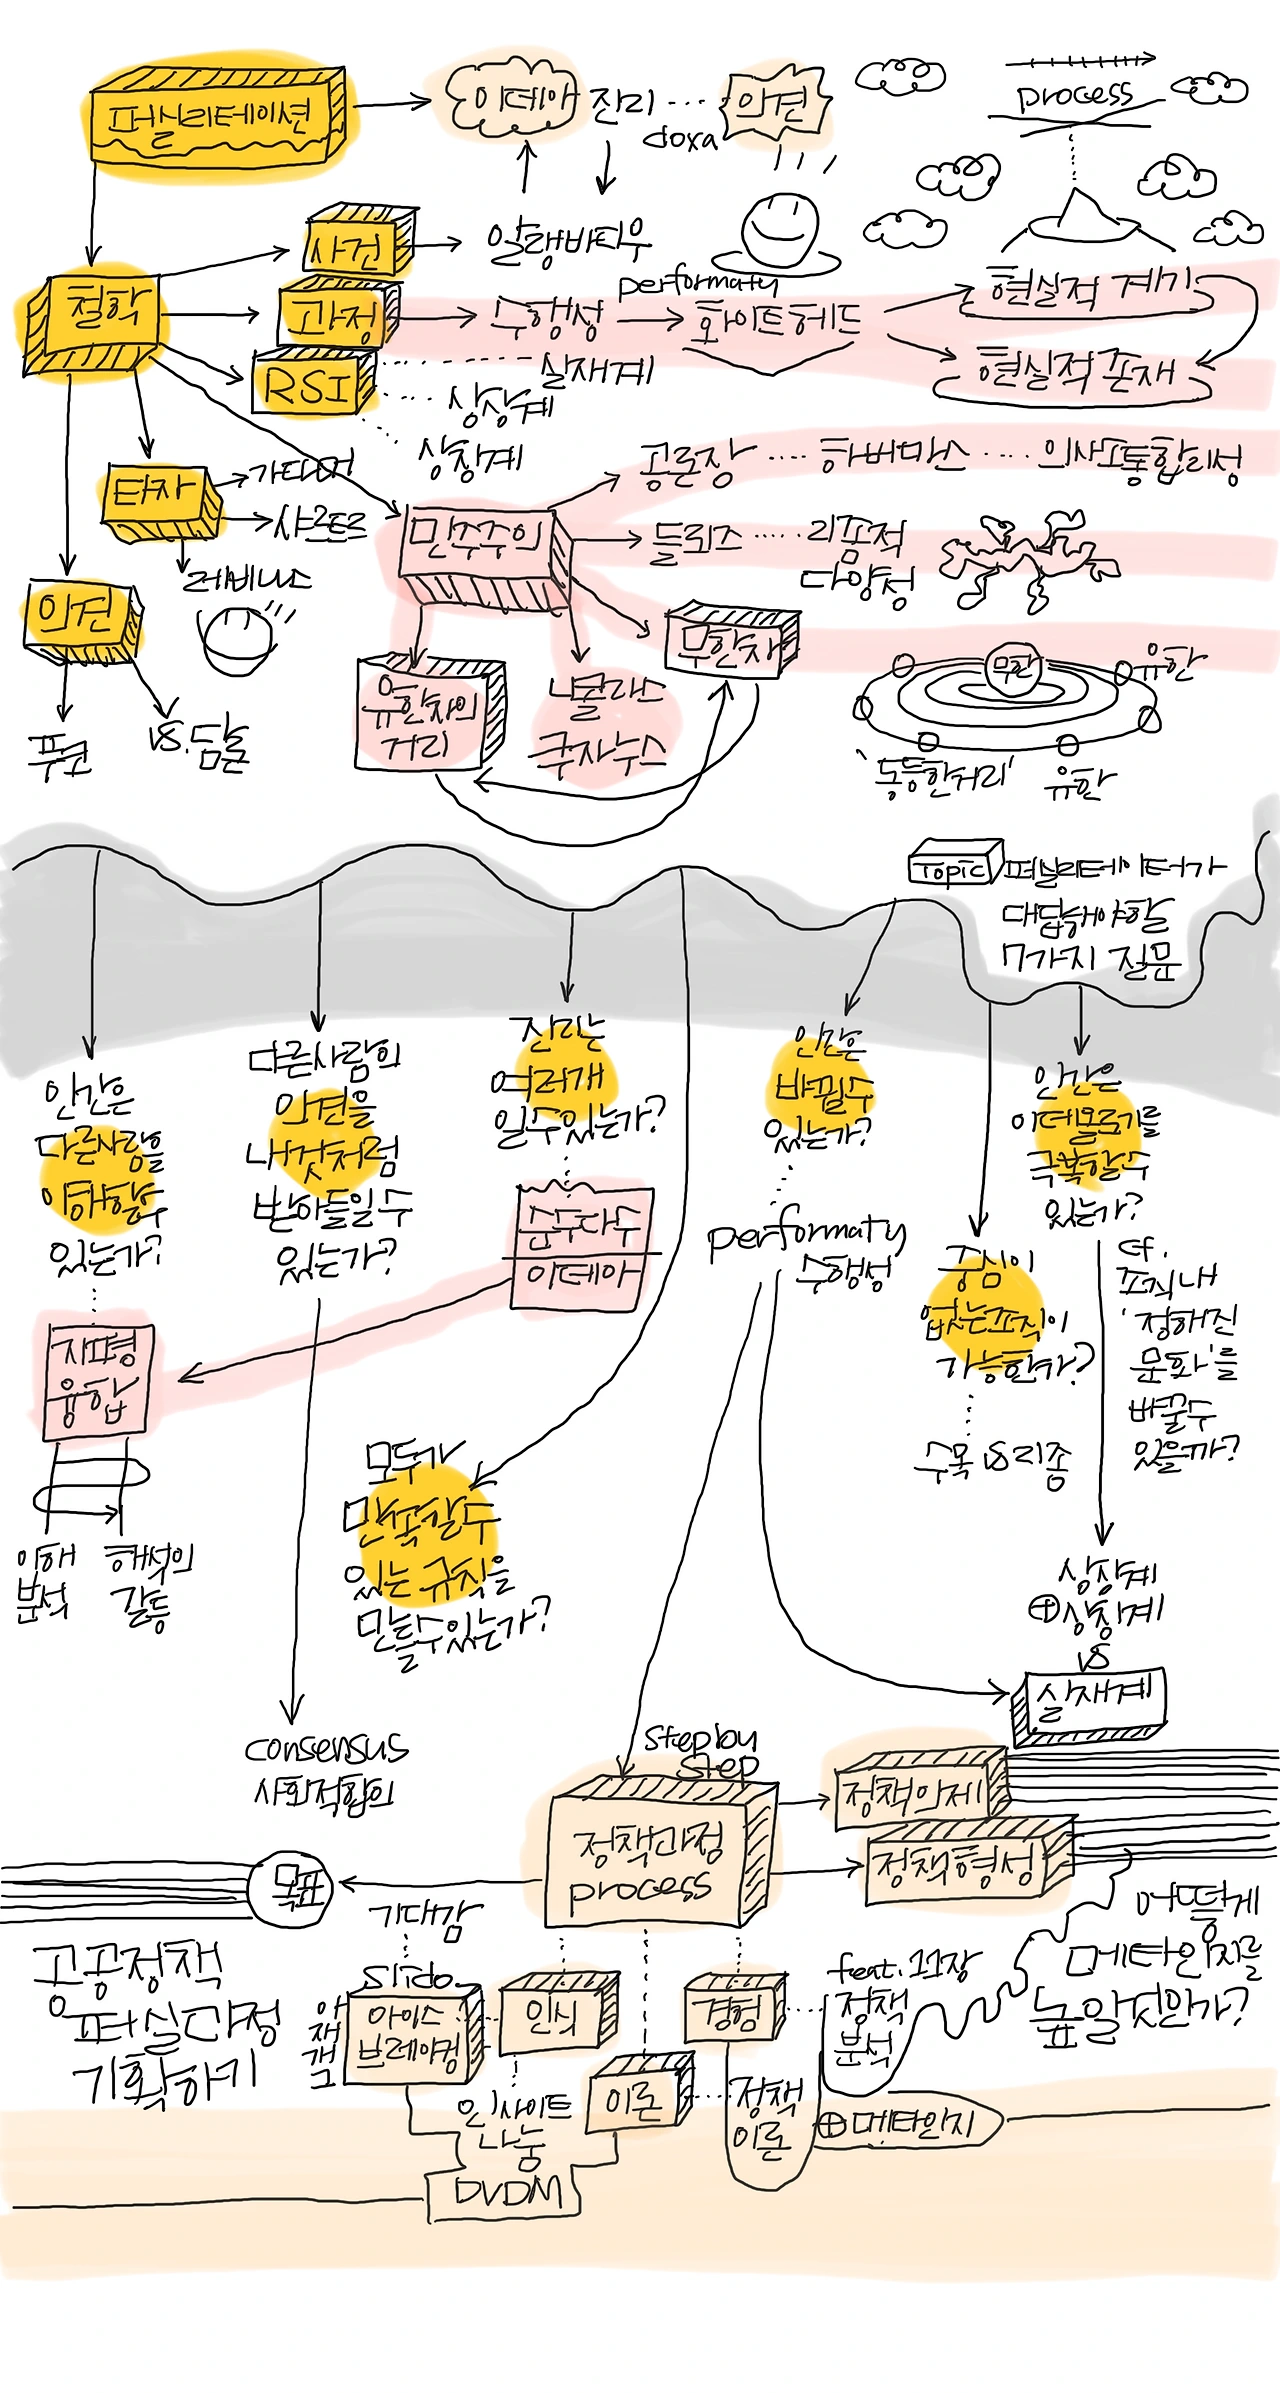 퍼실리테이션
이데아
진리
의견
doxa
process
사건
알랭바디우
철학
과정
수행성
performaty
화이트헤드
현실적 계기
현실적 존재
RSI
실재계
상상계
상징계
타자
가다머
샤르트르
레비나스
의견
푸코
vs. 담론
민주주의
공론장
하버마스
의사소통합리성
들뢰즈
리좀적
다양성
무한자
유한자의
거리
니콜라스
쿠자누스
무한
유한
'동등한거리'
유한
Topic
퍼실리테이터가
대답해야할
7가지 질문
인간은
다른사람을
이해할수
있는가?
다른사람의
의견을
내것처럼
받아들일수
있는가?
진리는
여러개
일수있는가?
인간은
바뀔수
있는가?
인간은
이데올로기를
극복할수
있는가?
순수다수
이데아
performaty
수행성
중심이
없는조직이
가능한가?
수목 vs 리좀
cf.
조직내
'정해진
문화'를
바꿀수
있을까?
지평
융합
이해
분석
해석의
갈등
모두가
만족할수
있는 규칙을
만들수있는가?
상상계
⊕상징계
vs
실재계
consensus
사회적합의
step by
step
정책과정
process
정책의제
정책형성
목표
기대감
공공정책
퍼실과정
기획하기
slido
아이스
브레이킹
인식
경험
이론
인사이트
나눔
DVDM
feat. 11장
정책
분석
정책
이론
⊕메타인지
어떻게
메타인지를
높일것인가?